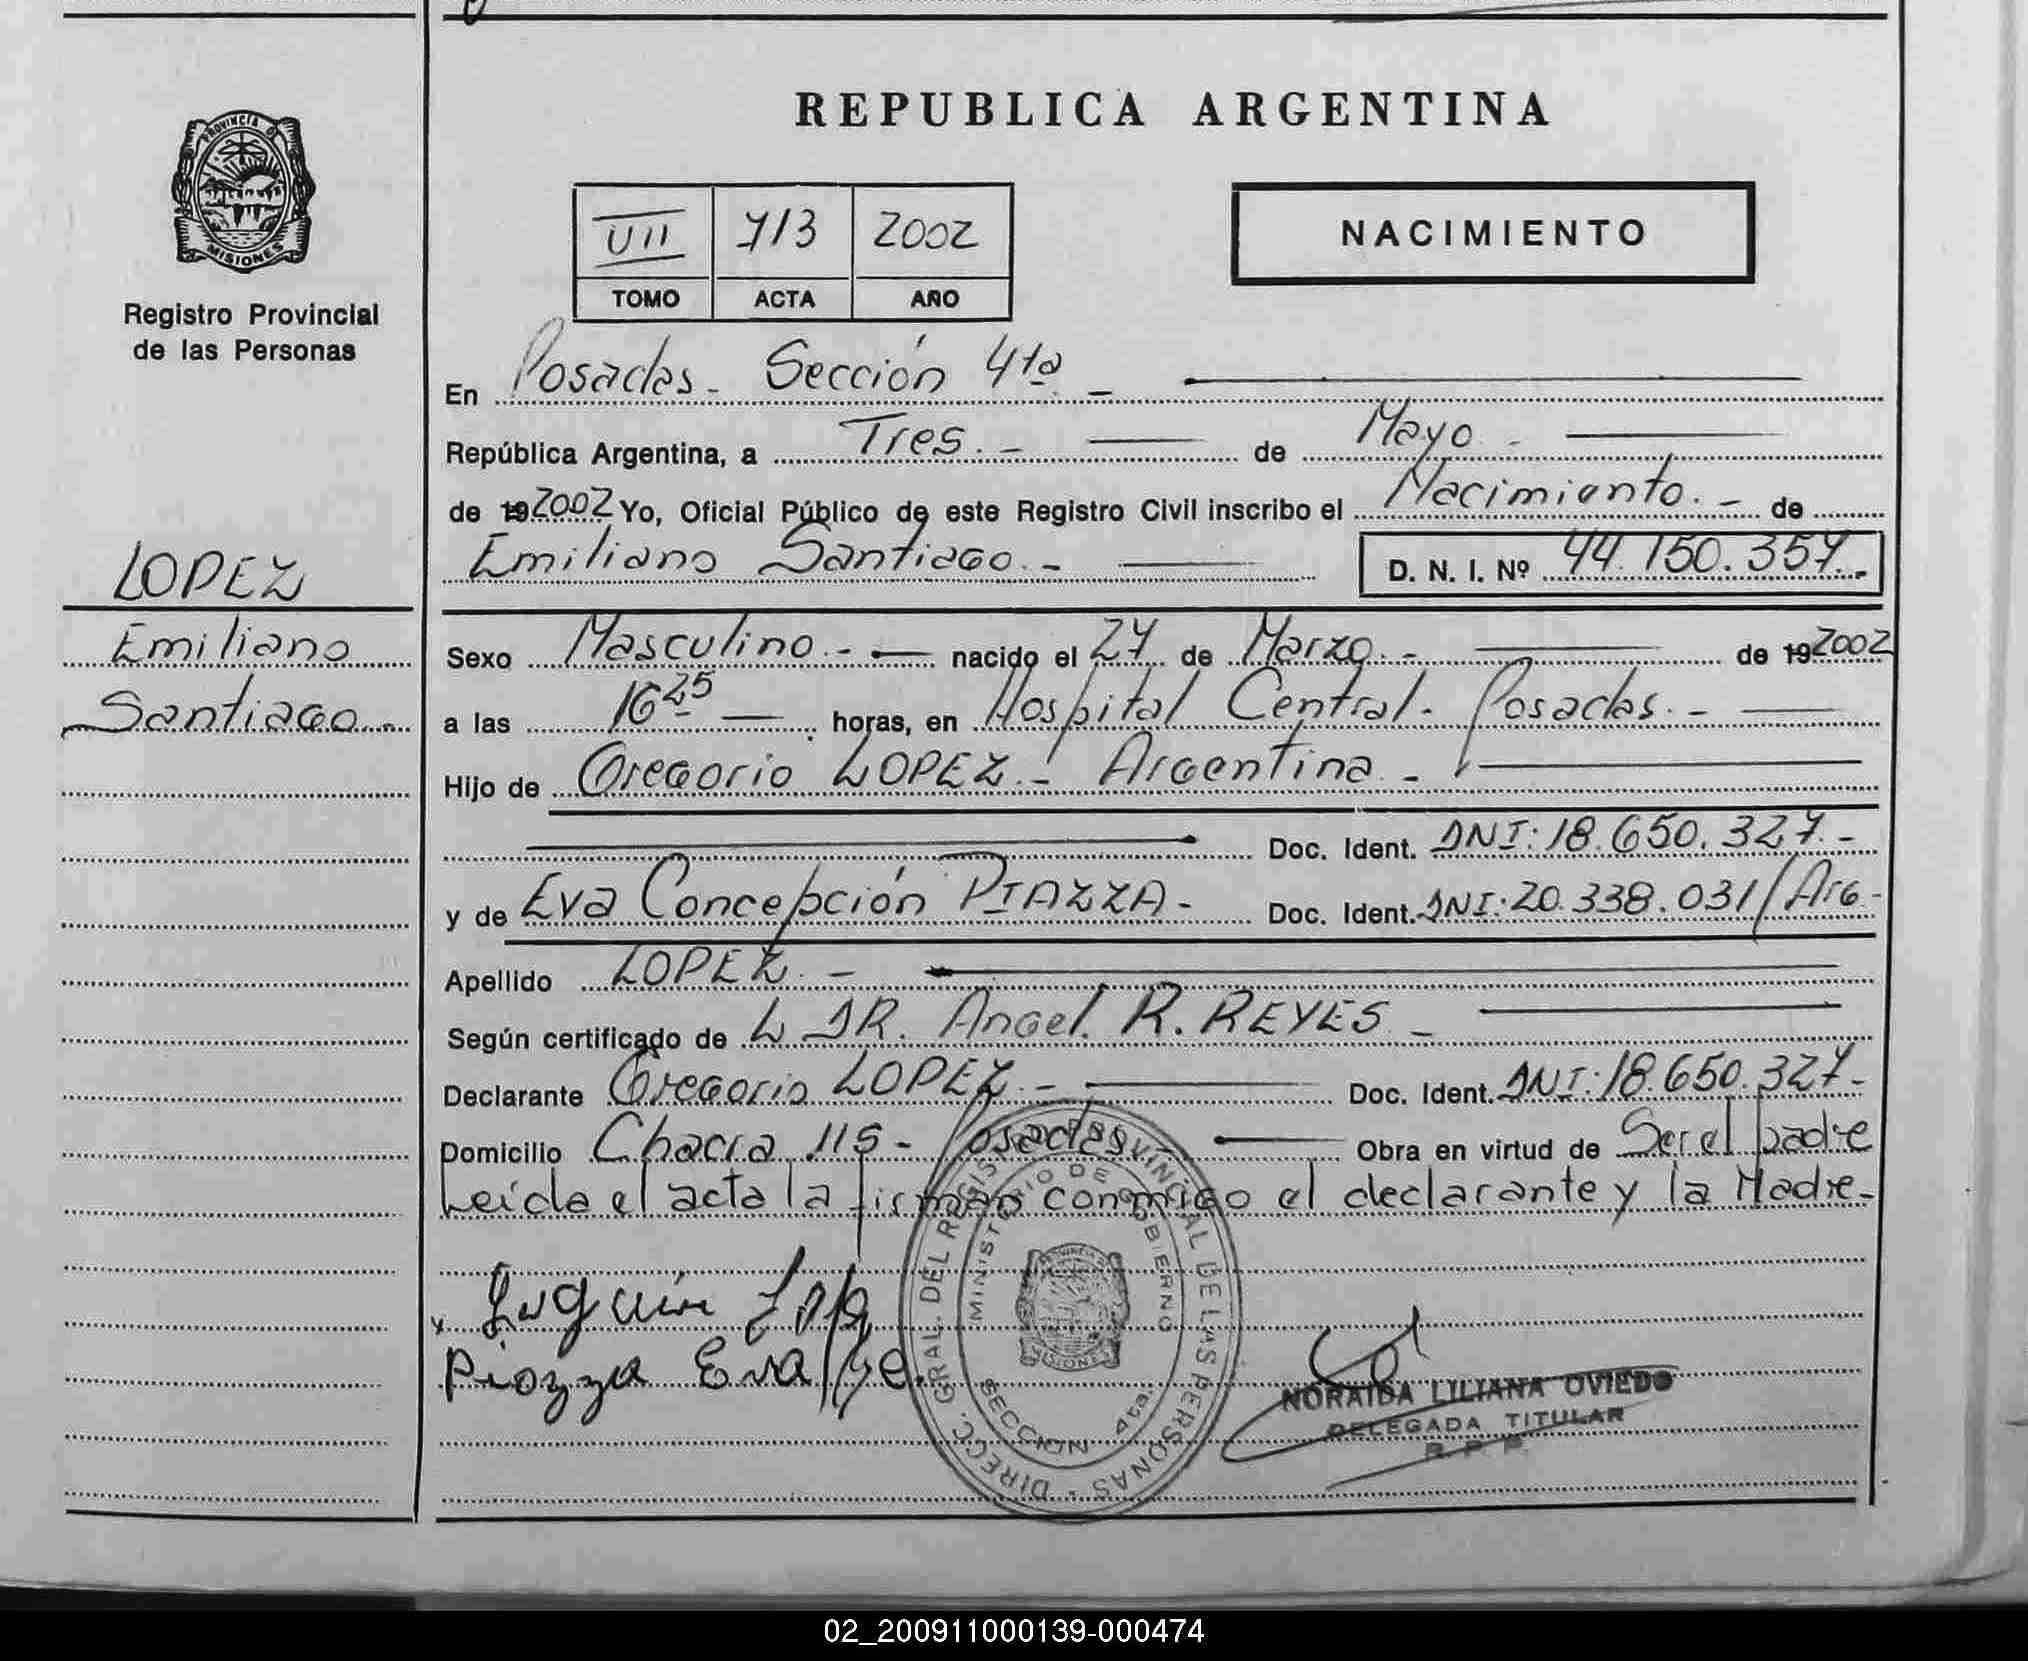 REPUBLICA ARGENTINA
PROVINCIA DE
MISIONES
Registro Provincial
de las Personas
VII 713 2002
TOMO ACTA AÑO
NACIMIENTO
En Posadas - Sección 4ta -
República Argentina, a Tres. - de Mayo -
de 19 2002 Yo, Oficial Público de este Registro Civil inscribo el Nacimiento. - de
Emiliano Santiago. - D. N. I. Nº 44.150.357.-
LOPEZ
Emiliano
Santiago.-
Sexo Masculino.- nacido el 27 de Marzo.- de 19 2002
a las 16 25 horas, en Hospital Central - Posadas. -
Hijo de Gregorio LOPEZ.- Argentina -
Doc. Ident. DNI: 18.650.327.-
y de Eva Concepción PIAZZA - Doc. Ident. DNI: 20.338.031/Arg -
Apellido LOPEZ. -
Según certificado de L DR. Angel. R. REYES -
Declarante Gregorio LOPEZ. - Doc. Ident. DNI: 18.650.327-
Domicilio Chacra 115 - Posadas Obra en virtud de Ser el padre
Leída el acta la firman conmigo el declarante y la Madre.
x Lopez
Piazza Eva
DIRECC. GRAL. DEL REGIST. PROVINCIAL DE LAS PERSONAS -
MINISTERIO DE GOBIERNO
SECCION 4ta.
MISIONES
NORAIDA LILIANA OVIEDO
DELEGADA TITULAR
R. P. P.
02_200911000139-000474